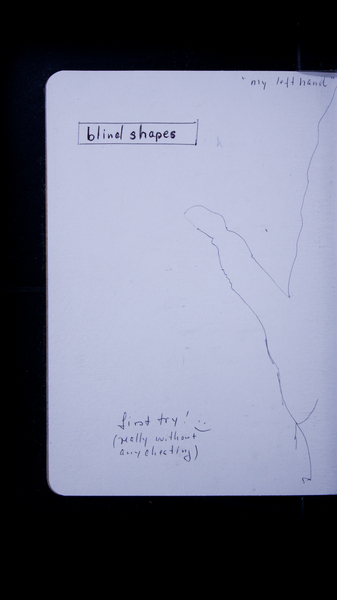 "my left hand"
blind shapes
first try! :)
(really without
any cheating)